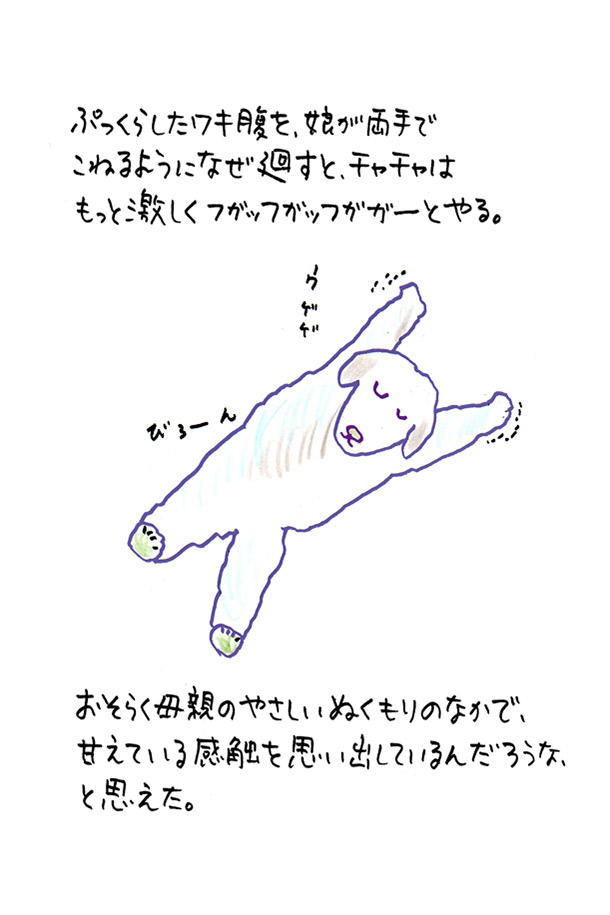 ぷっくらしたワキ腹を、娘が両手で
こねるようになぜ廻すと、チャチャは
もっと激しくフガッフガッフガガーとやる。
ウゲゲ
びろーん
おそらく母親のやさしいぬくもりのなかで、
甘えている感触を思い出しているんだろうな、
と思えた。